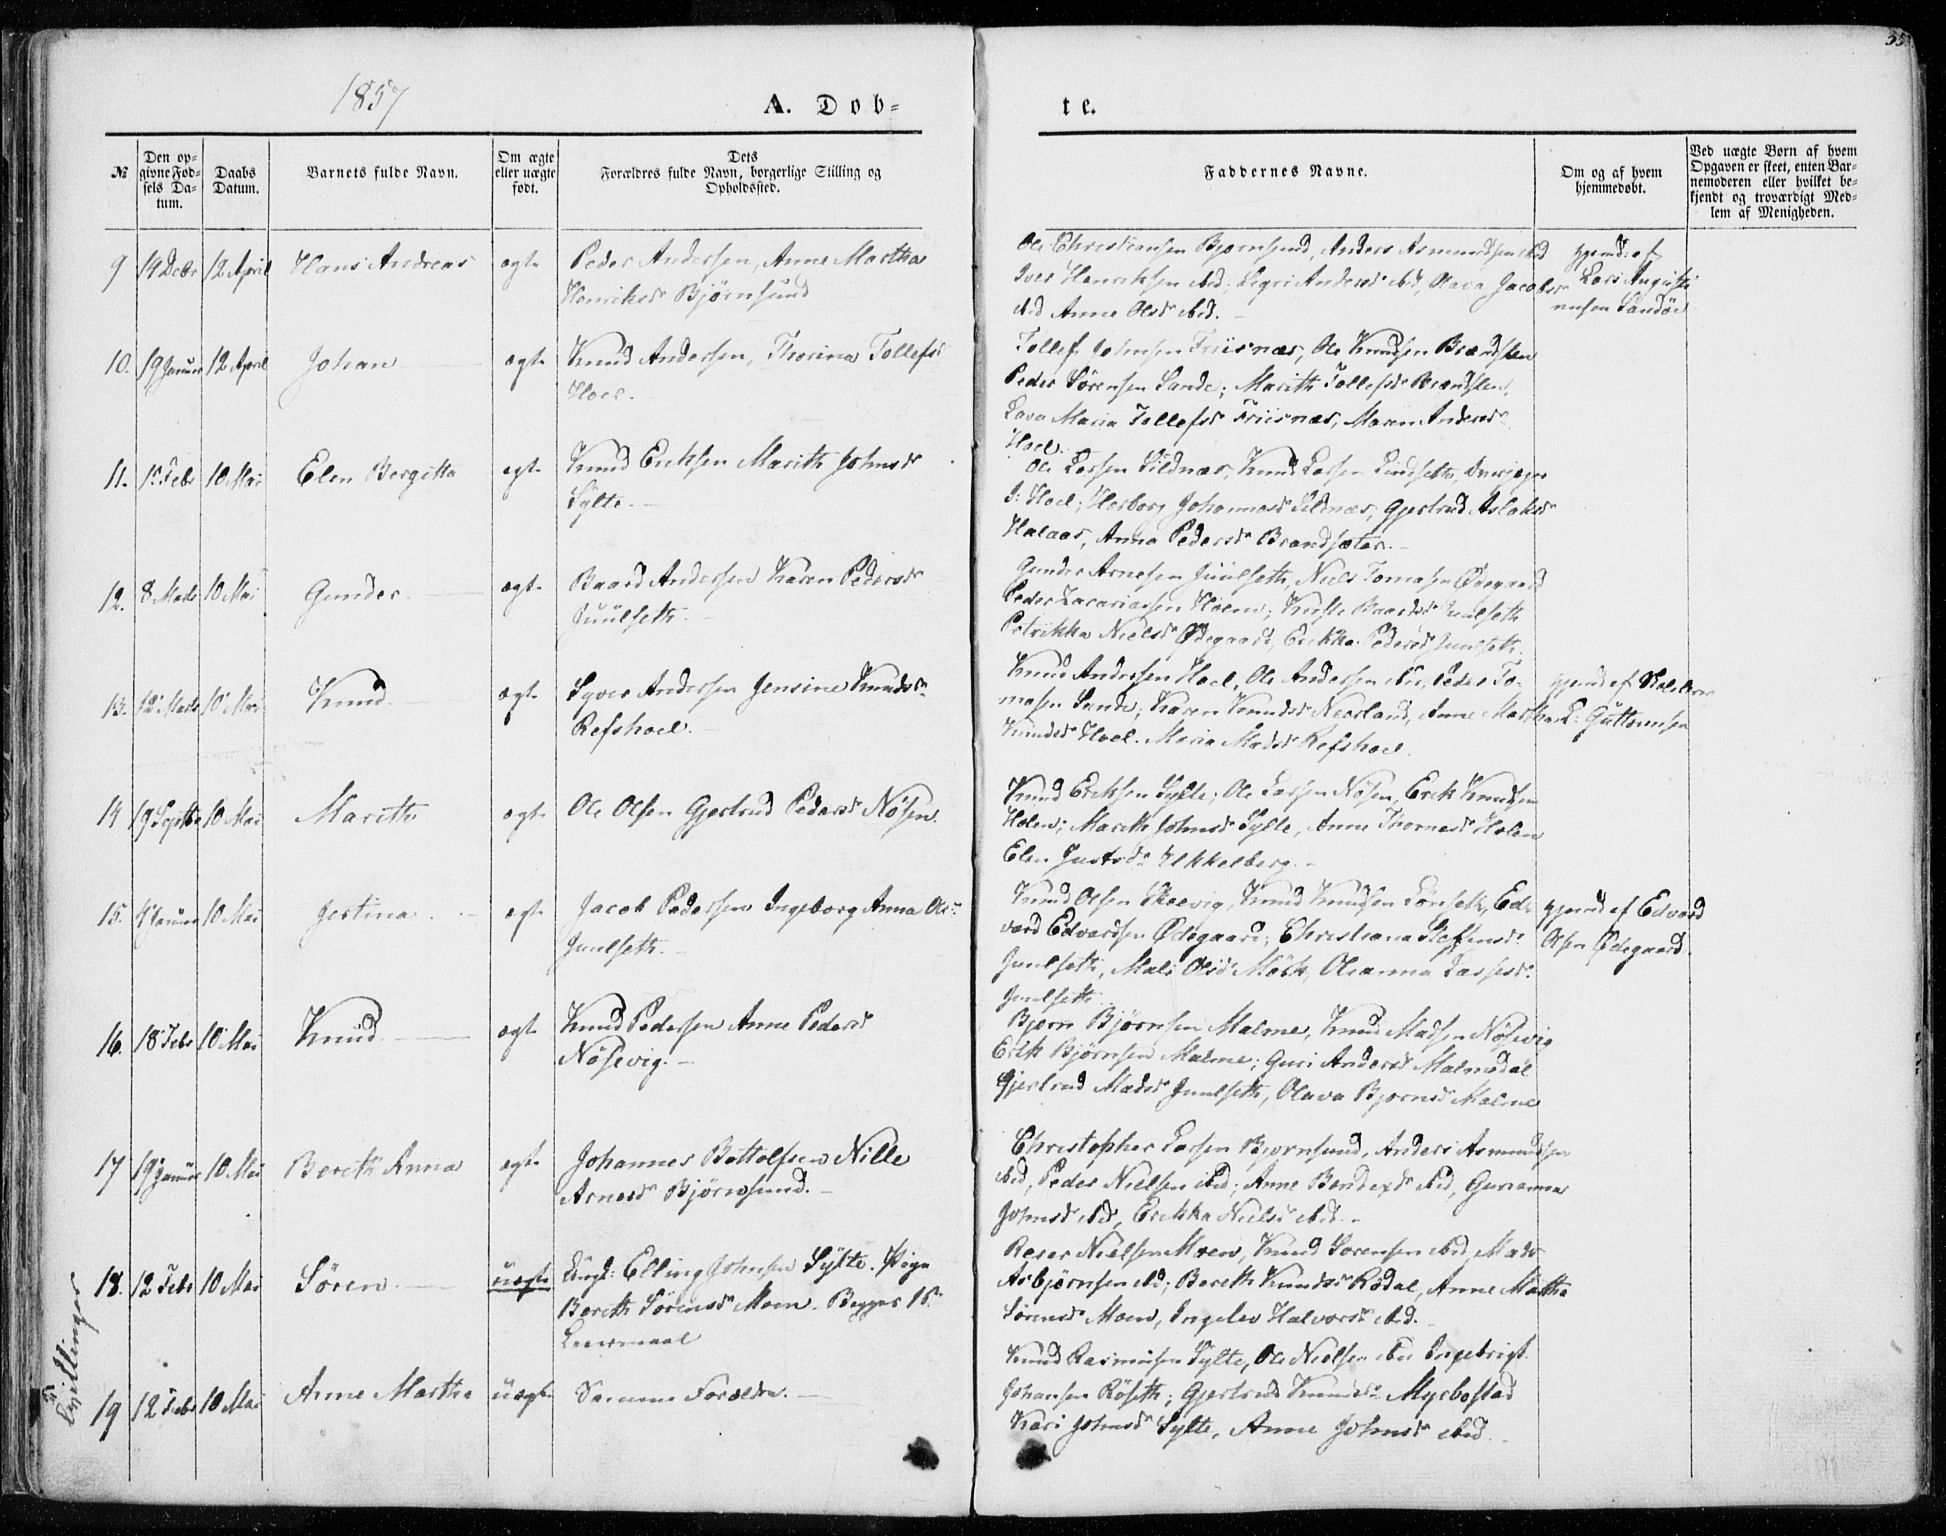 1857
A. Døb=
te.
55
№
Den op=
givne Fød=
sels Da=
tum.
Daabs
Datum.
Barnets fulde Navn.
Om ægte
eller uægte
født.
Dets
Forældres fulde Navn, borgerlige Stilling og
Opholdssted.
Faddernes Navne.
Om og af hvem
hjemmedøbt.
Ved uægte Børn af hvem
Opgaven er skeet, enten Bar=
nemoderen eller hvilket be=
kjendt og troværdigt Med=
lem af Menigheden.
9 14 Decbr 12 April Hans Andreas ægte Peder Andersen, Anne Martha
Henriksdr Bjørnsund
Ole Christiansen Bjørnsund, Anders Asmundsen ibid
Iver Henriksen ibid; Sigri Andersdr ibid, Olava Jacobsdr
ibid Anne Olsdr ibid.
hjemd: af
Lars Augusti
nusen Sandøe
10. 19 Januar 12 April Johan ægte Knud Andersen, Thorina Tollefsdr
Hoel.
Tollef Johnsen Friisnæs, Ole Knudsen Brandsten
Peder Sørensen Sande; Marith Tollefsdr Brandsten,
Lava Maria Tollefsdr Friisnæs, Maren Andersdr
Hoel.
11. Febr 10 Mai Elen Bergitta ægte Knud Eriksen Marith Johnsdr
Sylte.
Ole Larsen Sildnæs, Knud Larsen Lindseth,
J: Hoel; Herborg Johannesdr Sildnæs, Gjertrud Aslaksdr
Halaas, Anna Pedersdr Brandsæter.
12. 8 Marts 10 Mai Gunder ægte Baard Andersen Karen Pedersdr
Juulseth.
Gunder Arnesen Juulseth, Niels Tomasen Ødegaard
Peder Zacariassen Holen; Baardsdr Juulseth
Petrikka Nielsdr Ødegaard, Erikka Pedersdr Juulseth.
13. 12 Marts 10 Mai Knud ægte Syver Andersen Jensine Knudsdr
Refshoel.
Knud Andersen Hoel, Ole Andersen ibid, Peder To-
masen Sande; Karen Knudsdr Neerland, Anne Martha
Knudsdr Hoel. Maria Madsdr Refshoel.
hjemd af
L: Guttormsen
14 19 Septbr 10 Mai Marith ægte Ole Olsen Gjertrud Pedersdr Nøsen.
Knud Eriksen Sylte; Ole Larsen Nøsen, Erik Knudsen
Holen; Marith Johnsdr Sylte, Anne Thomasdr Holen
Elen Justsdr Ukkelberg.
15. Januar 10 Mai Jertina ægte Jacob Pedersen Ingeborg Anna Olsdr
Juulseth.
Knud Olsen Skeevig, Knud Knudsen Lønseth, Ed-
vard Edvardsen Ødegaard; Christiana Steffensdr
Juulseth, Mali Olsdr Mæle, Oleanna Lassesdr
Juulseth
hjemd af Edvard
Olsen Ødegaard.
16. 18 Febr 10 Mai Knud ægte Knud Pedersen Anne Pedersdr
Nøsevig.
Bjørn Bjørnsen Malme, Knud Madsen Nøsevig
Erik Bjørnsen Malme; Guri Andersdr Malmedal
Gjertrud Madsdr Juulseth, Olava Bjørnsdr Malme
17 19 Januar 10 Mai Bereth Anna ægte Johannes Bottolfsen Nille
Arnesdr Bjørnsund.
Christopher Larsen Bjørnsund, Anders Asmundsen
ibid, Peder Nielsen ibid; Anne Bendixdr ibid, Gurianna
Johnsdr ibid, Erikka Nielsdr ibid.
18. 12 Febr 10 Mai Søren uægte Ungk: Elling Johnsen Sylte. Pige
Bereth Sørensdr Moen. Begges 1ste
Leiermaal
Reier Nielsen Moen, Knud Sørensen ibid, Mads
Asbjørnsen ibid; Bereth Knudsdr Rødal, Anne Martha
Sørensdr Moen, Ingelev Halvorsdr ibid.
Tvillinger
19 12 Febr 10 Mai Anne Martha uægte Samme Forældre.
Knud Rasmusen Sylte, Ole Nielsen ibid Ingebrigt
Johansen Røseth; Gjertrud Knudsdr Myrbostad
Kari Johnsdr Sylte, Anne Johnsdr ibid